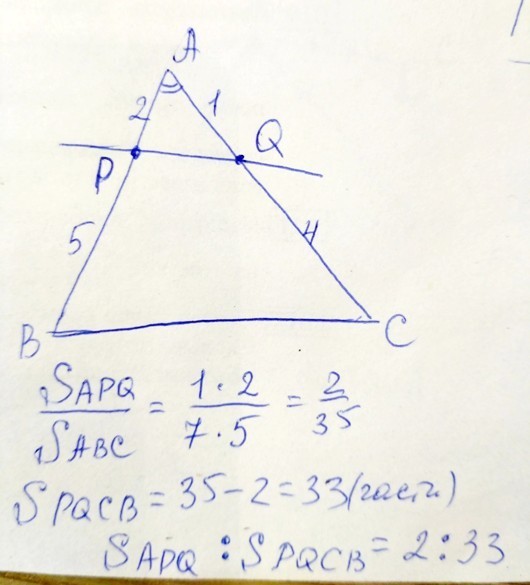 A
2 1
P Q
5 4
B C
S APQ / S ABC = 1·2 / 7·5 = 2/35
S PQCB = 35 - 2 = 33 (части)
S APQ : S PQCB = 2:33